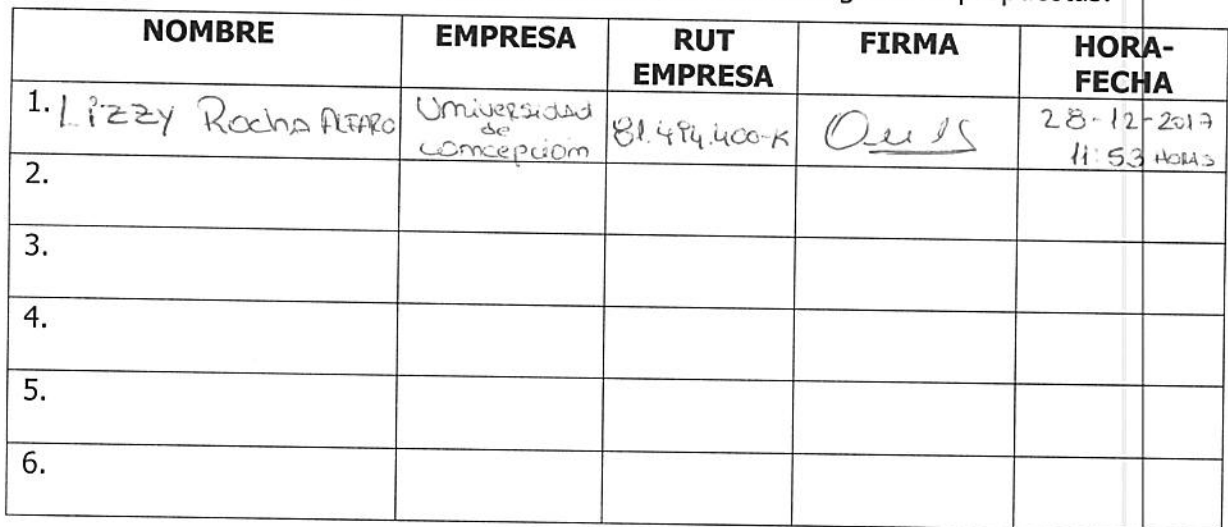 NOMBRE EMPRESA RUT EMPRESA FIRMA HORA-FECHA
1. Lizzy Rocha Alfaro Universidad de Concepción 81.494.400-K 28-12-2017 11:53 HORAS
2.
3.
4.
5.
6.